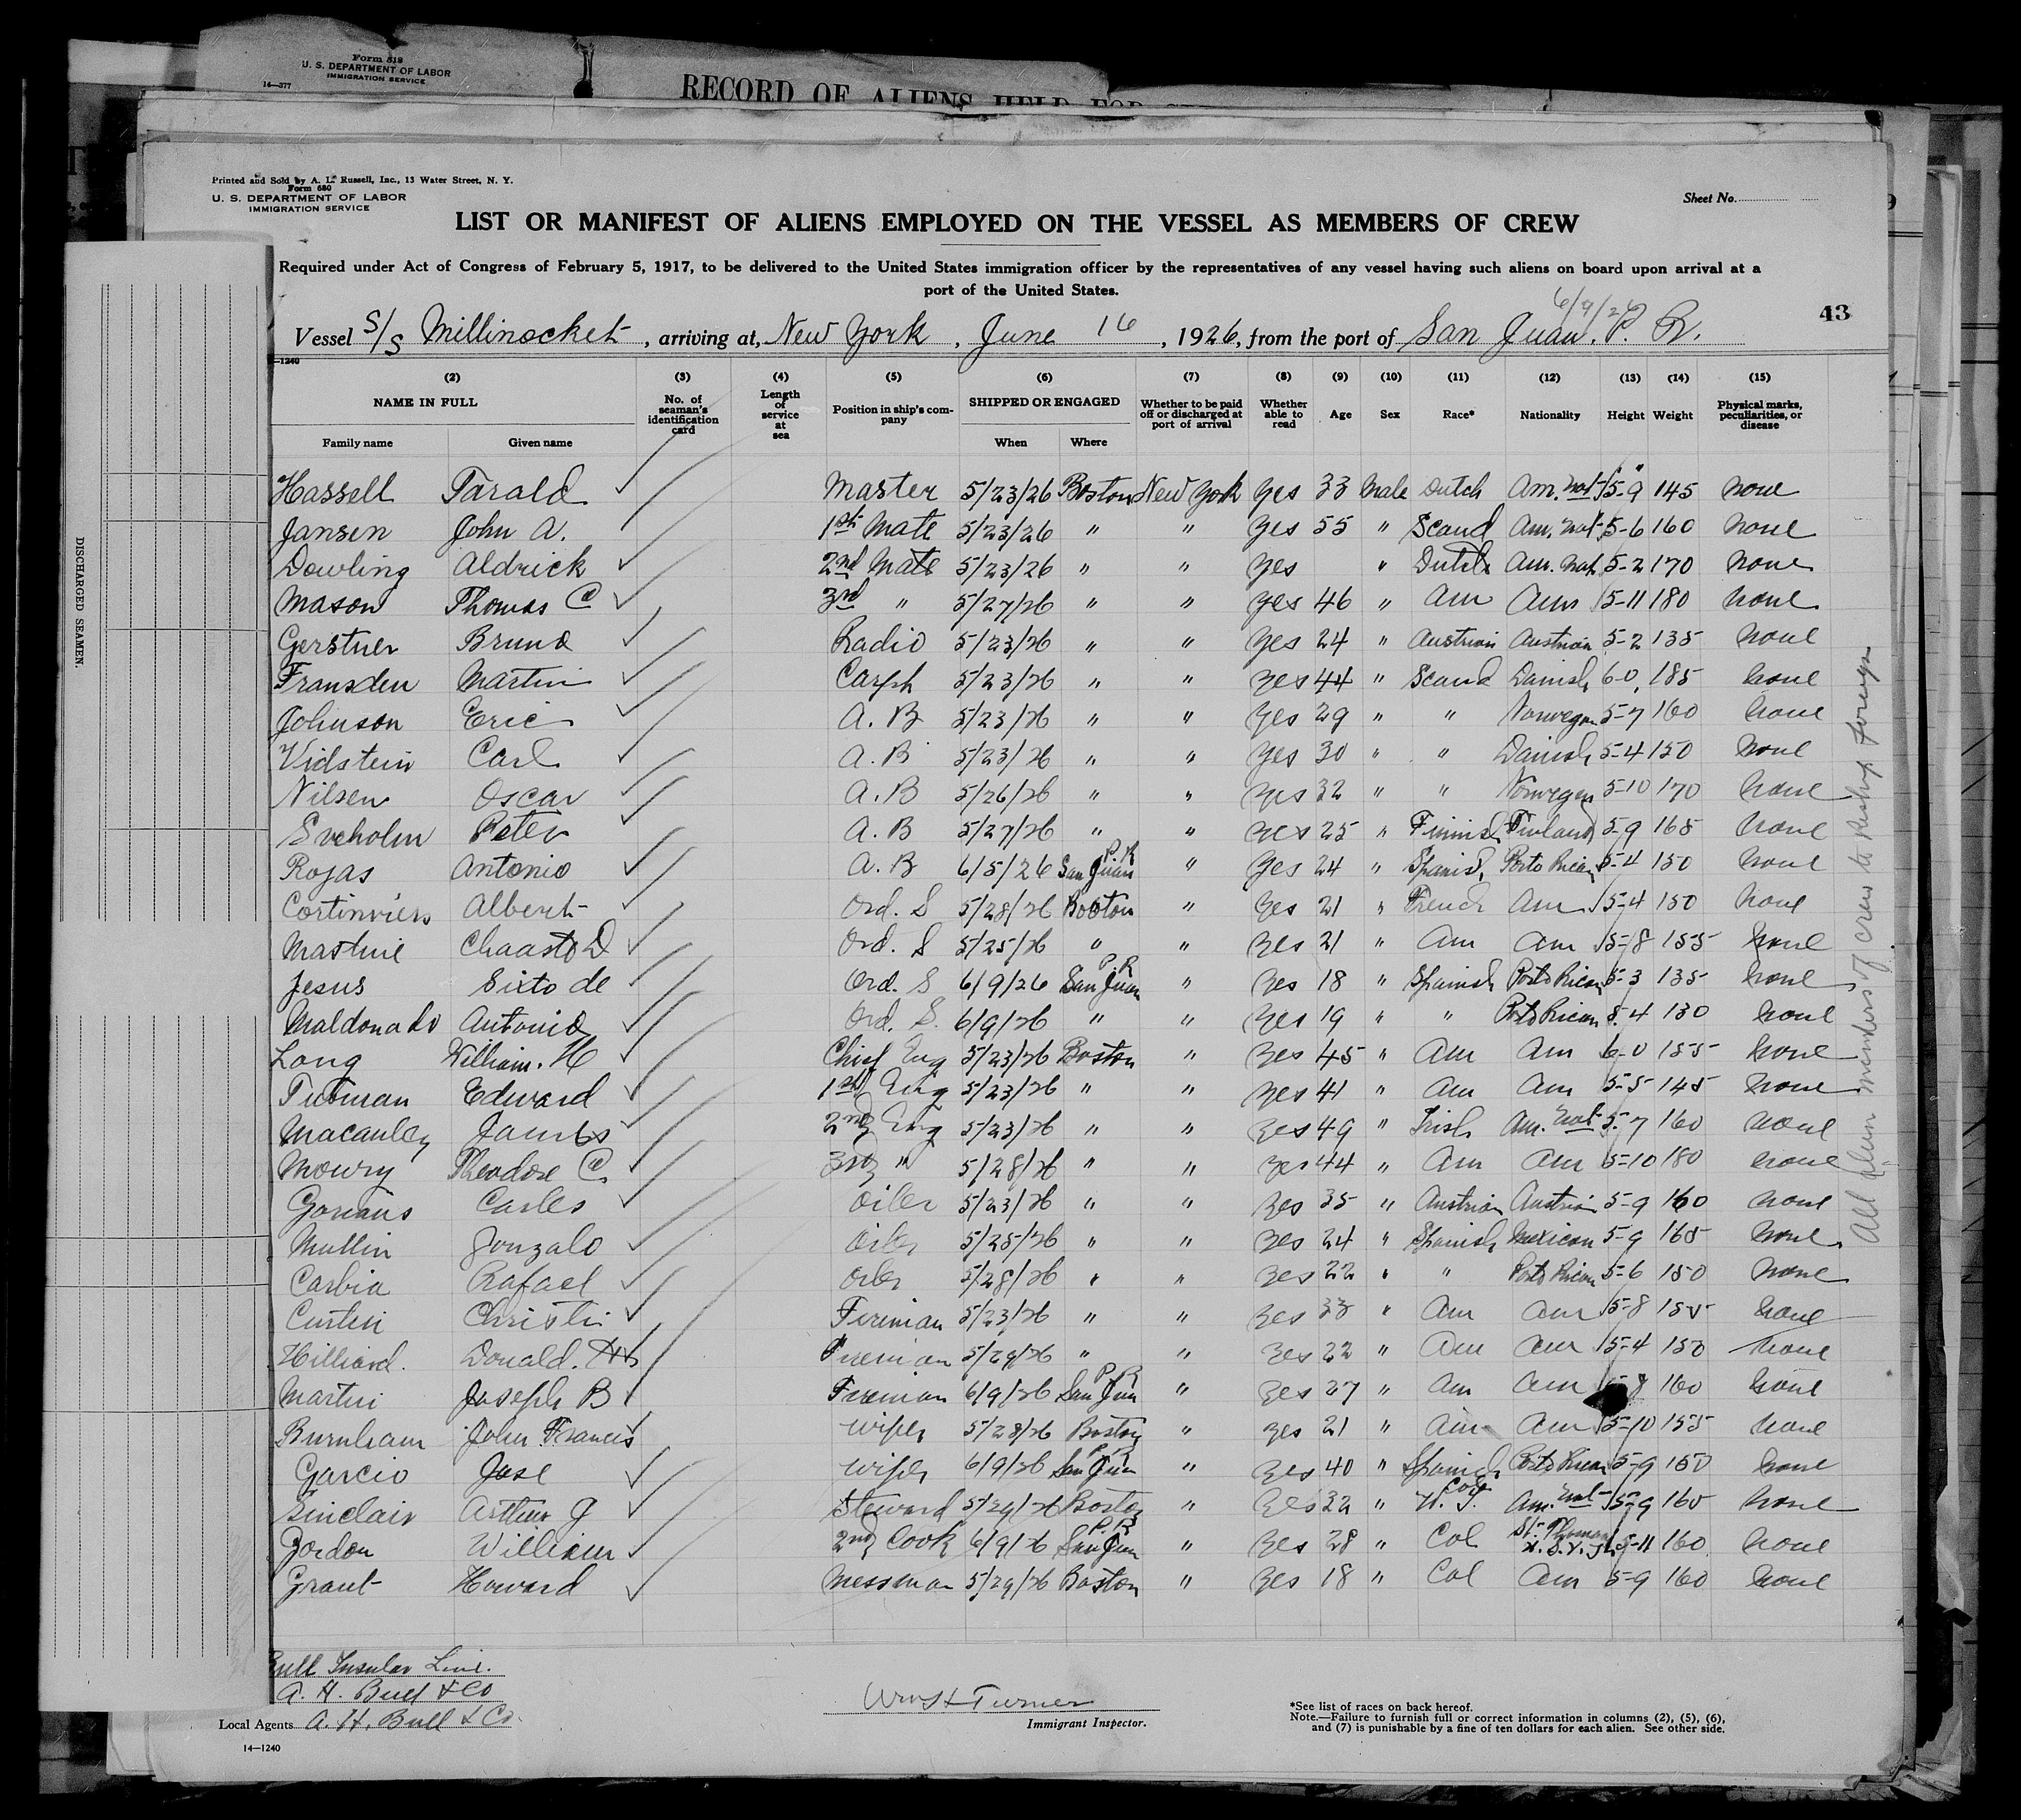 Form 618
U. S. DEPARTMENT OF LABOR
IMMIGRATION SERVICE
14—377
RECORD OF ALIENS HELD FOR
Printed and Sold by A. L. Russell, Inc., 13 Water Street, N. Y.
Form 680
U. S. DEPARTMENT OF LABOR
IMMIGRATION SERVICE
Sheet No.
LIST OR MANIFEST OF ALIENS EMPLOYED ON THE VESSEL AS MEMBERS OF CREW
Required under Act of Congress of February 5, 1917, to be delivered to the United States immigration officer by the representatives of any vessel having such aliens on board upon arrival at a
port of the United States.
6/9/26
43
Vessel S/S Millinocket, arriving at, New York, June 16, 1926, from the port of San Juan. P. R.
—1240
(2) (3) (4) (5) (6) (7) (8) (9) (10) (11) (12) (13) (14) (15)
NAME IN FULL No. of seaman's identification card Length of service at sea Position in ship's company SHIPPED OR ENGAGED Whether to be paid off or discharged at port of arrival Whether able to read Age Sex Race* Nationality Height Weight Physical marks, peculiarities, or disease
Family name Given name When Where
Hassell Tarald Master 5/23/26 Boston New York Yes 33 Male Dutch Am. nat 5-9 145 none
Jansen John A. 1st Mate 5/23/26 " " Yes 55 " Scand Am. nat 5-6 160 none
Dowling Aldrick 2nd Mate 5/23/26 " " Yes " Dutch Am. nat 5-2 170 none
Mason Thomas C 3rd " 5/27/26 " " Yes 46 " Am Am 5-11 180 none
Gerstner Bruno Radio 5/23/26 " " Yes 24 " Austrian Austrian 5-2 135 none
Fransden Martin Carp 5/23/26 " " Yes 44 " Scand Danish 6-0 185 none
Johnson Eric A. B 5/23/26 " " Yes 29 " " Norwegan 5-7 160 none
Vidstein Carl A. B 5/23/26 " " Yes 30 " " Danish 5-4 150 none
Nilsen Oscar A. B 5/26/26 " " Yes 32 " " Norwegan 5-10 170 none
Sveholm Peter A. B 5/27/26 " " Yes 25 " Finnish Finland 5-9 165 none
Rojas Antonio A. B 6/5/26 San Juan P. R " Yes 24 " Spanish Porto Rican 5-4 150 none
Cortinviers Albert Ord. S 5/28/26 Boston " Yes 21 " French Am 5-4 150 none
Masthie Chaasto D Ord. S 5/25/26 " " Yes 21 " Am Am 5-8 155 none
Jesus Sixto de Ord. S 6/9/26 San Juan P R " Yes 18 " Spanish Porto Rican 5-3 135 none
Maldonado Antonio Ord. S. 6/9/26 " " Yes 19 " " Porto Rican 5-4 130 none
Long William. H Chief Eng 5/23/26 Boston " Yes 45 " Am Am 6-0 155 none
Tubman Edward 1st Eng 5/23/26 " " Yes 41 " Am Am 5-5 145 none
Macauley James 2nd Eng 5/23/26 " " Yes 49 " Irish Am. nat 5-7 160 none
Mowry Theodore C. 3rd " 5/28/26 " " Yes 44 " Am Am 5-10 180 none
Gorians Carles Oiler 5/23/26 " " Yes 35 " Austrian Austrian 5-9 160 none
Mullin Gonzalo Oiler 5/25/26 " " Yes 24 " Spanish Mexican 5-9 165 none
Carbia Rafael Oiler 5/28/26 " " Yes 22 " " Porto Rican 5-6 150 none
Curtin Christi Fireman 5/23/26 " " Yes 33 " Am Am 5-8 155 none
Hilliard. Donald. Fireman 5/29/26 " " Yes 22 " Am Am 5-4 150 none
Martin Joseph B Fireman 6/9/26 San Juan P R " Yes 27 " Am Am 5-8 160 none
Burnham John Francis Wiper 5/28/26 Boston " Yes 21 " Am Am 5-10 155 none
Garcio Jose Wiper 6/9/26 San Juan P R " Yes 40 " Spanish Porto Rican 5-9 150 none
Sinclair Arthur G Steward 5/29/26 Boston " Yes 32 " Col W. I. Am. nat 5-9 160 none
Gordon William 2nd Cook 6/9/26 San Juan P R " Yes 28 " Col St. Thomas 5-11 160 none
Grant Howard Messman 5/29/26 Boston " Yes 18 " Col Am 5-9 160 none
All alien members of crew to reship foreign
DISCHARGED SEAMEN.
Bull Insular Line.
A. H. Bull & Co
Local Agents A. H. Bull & Co.
14—1240
Turner
Immigrant Inspector.
*See list of races on back hereof.
Note.—Failure to furnish full or correct information in columns (2), (5), (6),
and (7) is punishable by a fine of ten dollars for each alien. See other side.